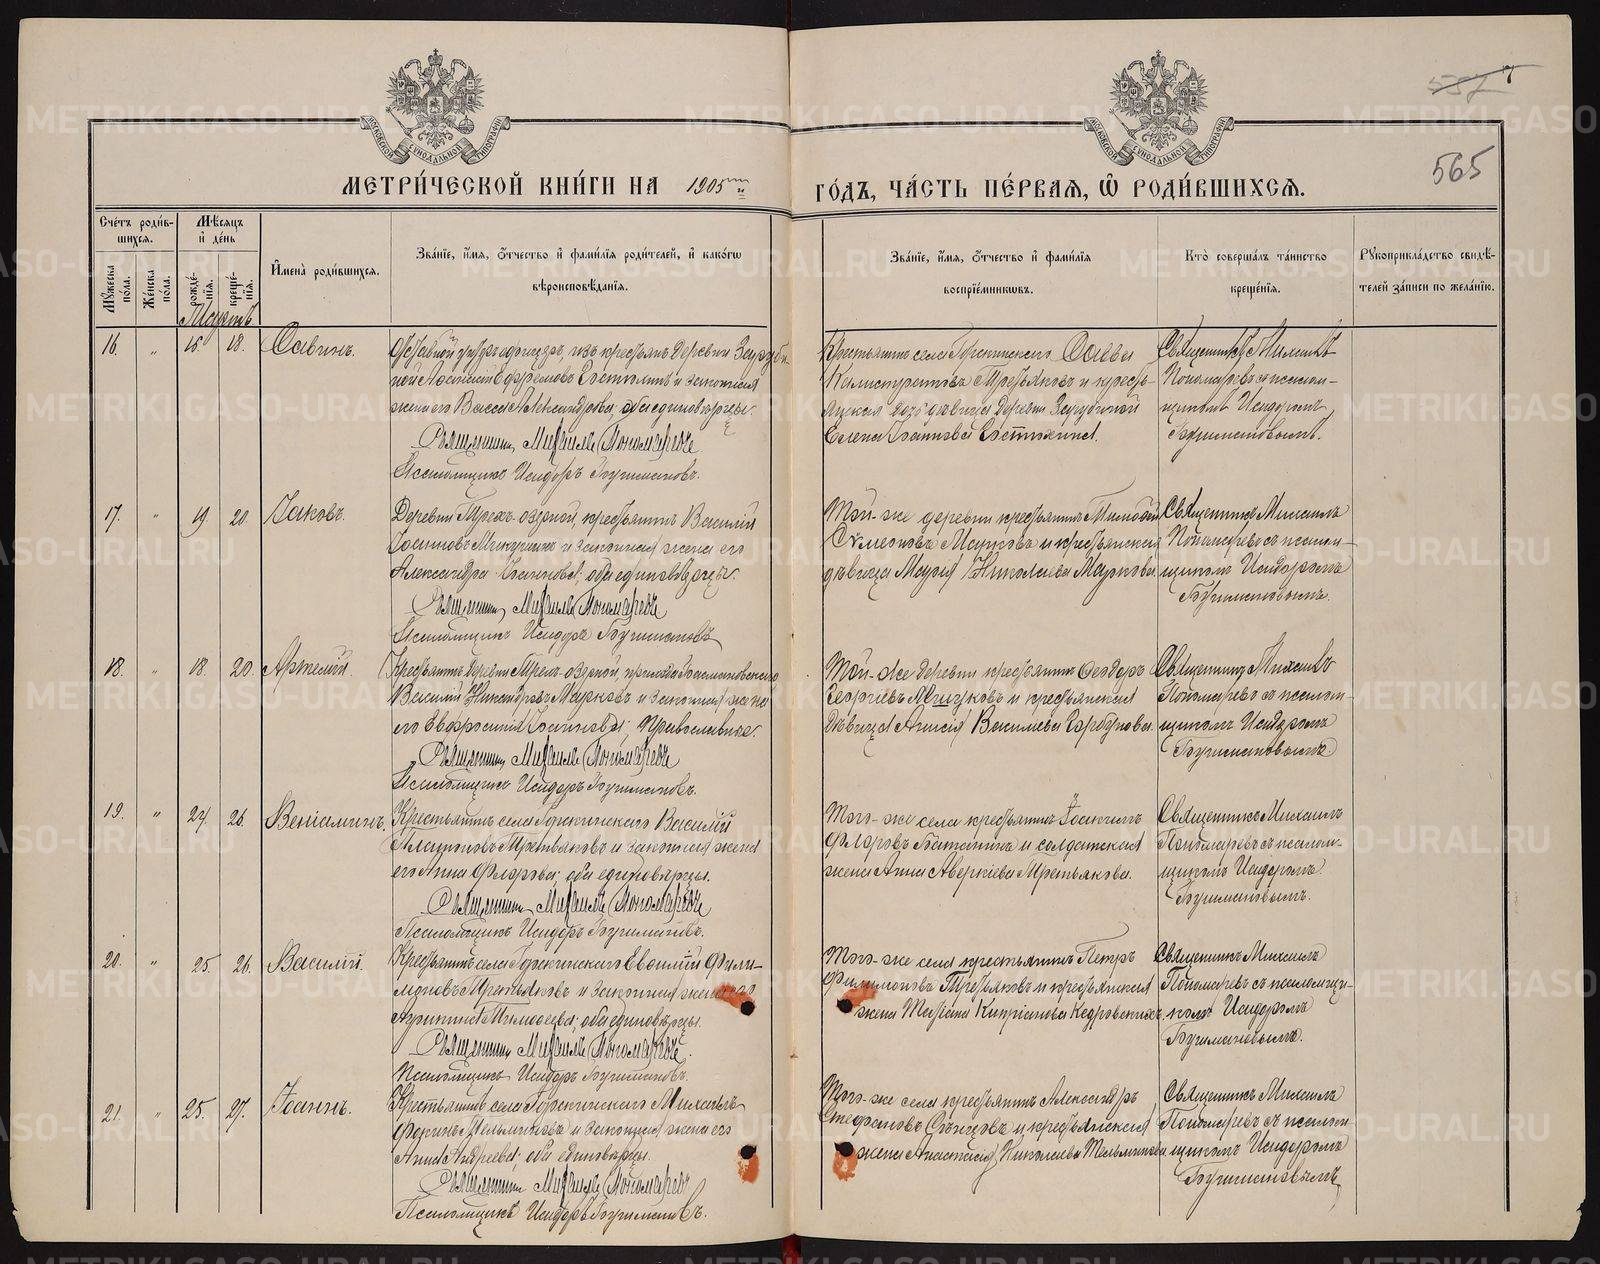 МЕТРИ́ЧЕСКОЙ КНИ́ГИ НА 1905
ГО́ДЪ, ЧА́СТЬ ПЕ́РВАЯ, Ѡ РОДИ́ВШИХСЯ.
565
МОСКОВСКОЙ СУНОДАЛЬНОЙ ТИПОГРАФІИ
МОСКОВСКОЙ СУНОДАЛЬНОЙ ТИПОГРАФІИ
Сче́тъ роди́в-
шихся.
Мꙋжеска по́ла.
Же́нска по́ла.
Мѣ́сяцъ
и де́нь
рожде́-
нїя.
креще́-
нїя.
Имена̀ роди́вшихся.
Зва́нїе, и́мя, ѻ́тчество и фами́лїя роди́телей, и како́гѡ
вѣроисповѣ́данїя.
Зва́нїе, и́мя, ѻ́тчество и фами́лїя
воспрїе́мниковъ.
Кто̀ соверша́лъ та́инство
креще́нїя.
Рꙋкоприкла́дство свидѣ́-
телей за́писи по жела́нїю.
Мартъ
16. " 15. 18. Саввинъ.
Отставной унтеръ офицеръ, изъ крестьянъ деревни Заруби-
ной Ефремовъ и законная
жена его Васса Александрова, оба единовѣрцы.
Священникъ Михаилъ Пономаревъ
Псаломщикъ Исидоръ
Крестьянинъ села Горскинскаго Савва
Калистратовъ Третьяковъ и кресть-
янская дѣвица деревни Зарубиной
Елена Іоаннова
Священникъ Михаилъ
Пономаревъ съ псалом-
щикомъ Исидоромъ
17. " 19. 20. Іаковъ.
Деревни Трехъ-озерной, крестьянинъ Василій
Іоанновъ и законная жена его
Александра Іоаннова; оба единовѣрцы.
Священникъ Михаилъ Пономаревъ
Псаломщикъ Исидоръ
Той-же деревни крестьянинъ Тимофей
Сѵмеоновъ Марковъ и крестьянская
дѣвица Марія Николаева Маркова.
Священникъ Михаилъ
Пономаревъ съ псалом-
щикомъ Исидоромъ
18. " 18. 20. Артемій.
Крестьянинъ деревни Трех-озерной, прихода
Василій Никандровъ Марковъ и законная жена
его Евфросинія Іоаннова, православные.
Священникъ Михаилъ Пономаревъ
Псаломщикъ Исидоръ
Той-же деревни крестьянинъ Ѳеодоръ
Георгіевъ и крестьянская
дѣвица Анисія Васильева
Священникъ Михаилъ
Пономаревъ съ псалом-
щикомъ Исидоромъ
19. " 24. 26. Веніаминъ.
Крестьянинъ села Горскинскаго Василій
Платоновъ Третьяковъ и законная жена
его Анна Флорова; оба единовѣрцы.
Священникъ Михаилъ Пономаревъ
Псаломщикъ Исидоръ
Того-же села крестьянинъ Іоакимъ
Флоровъ и солдатская
жена Анна Аверкіева Третьякова.
Священникъ Михаилъ
Пономаревъ съ псалом-
щикомъ Исидоромъ
20. " 25. 26. Василій.
Крестьянинъ села Горскинскаго Евсилій Фили-
моновъ Третьяковъ и законная жена его
Тимофеева; оба единовѣрцы.
Священникъ Михаилъ Пономаревъ
Псаломщикъ Исидоръ
Того-же села крестьянинъ Петръ
Филимоновъ Третьяковъ и крестьянская
жена Кипріанова Кедровскихъ.
Священникъ Михаилъ
Пономаревъ съ псаломщи-
комъ Исидоромъ
21. " 25. 27. Іоаннъ.
Крестьянинъ села Горскинскаго Михаилъ
Мельниковъ и законная жена его
Анна Андреева; оба единовѣрцы.
Священникъ Михаилъ Пономаревъ
Псаломщикъ Исидоръ
Того-же села крестьянинъ Александръ
Стефановъ и крестьянская
жена Анастасія Николаева Мельникова
Священникъ Михаилъ
Пономаревъ съ псалом-
щикомъ Исидоромъ
METRIKI.GASO-URAL.RU